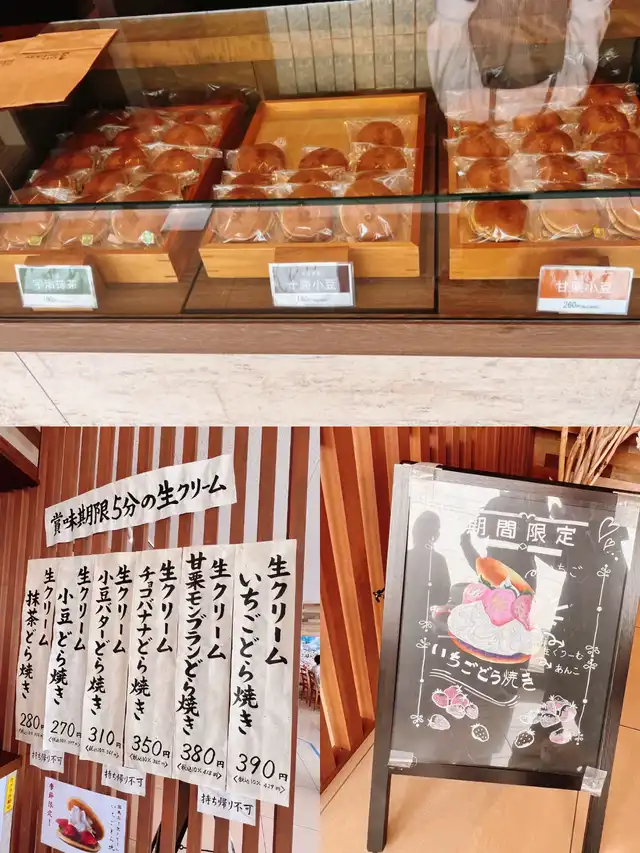 十勝小豆
甘栗小豆
260円
賞味期限5分の生クリーム
生クリーム
いちごどら焼き
390円
生クリーム
甘栗モンブランどら焼き
380円
生クリーム
チョコバナナどら焼き
350円
生クリーム
小豆バターどら焼き
310円
生クリーム
小豆どら焼き
270円
生クリーム
抹茶どら焼き
280円
持ち帰り不可
持ち帰り不可
持ち帰り不可
季節限定!
期間限定
いちご
生くりーむ
あんこ
いちごどら焼き